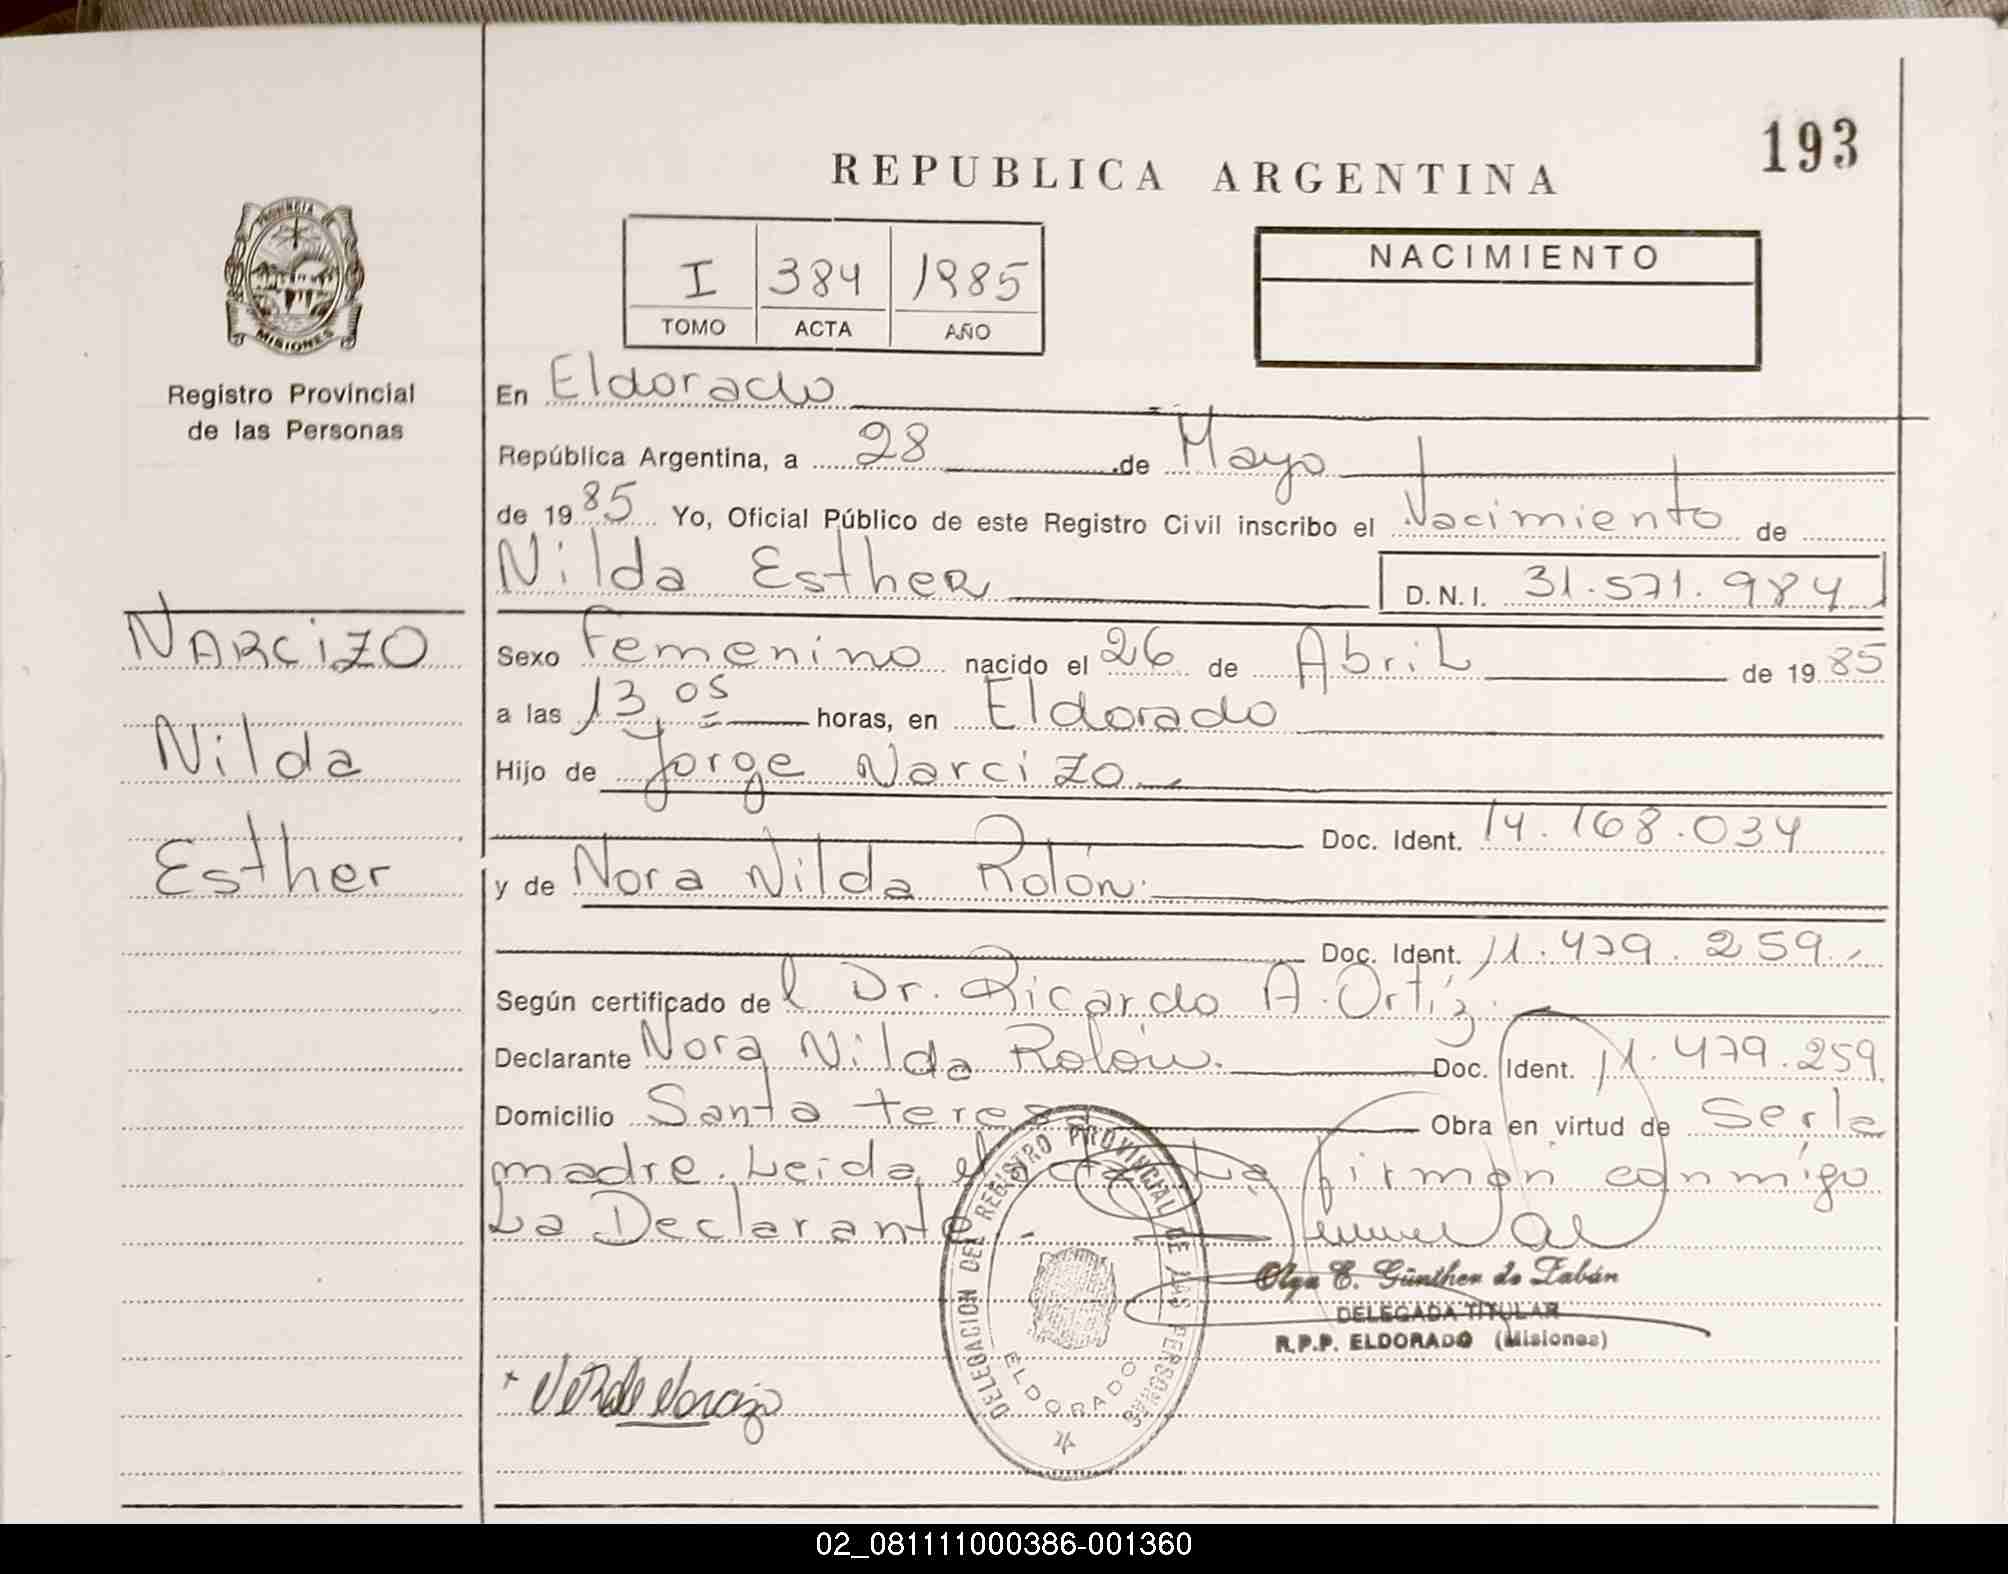 193
REPUBLICA ARGENTINA
PROVINCIA
MISIONES
Registro Provincial
de las Personas
I 384 1985
TOMO ACTA AÑO
NACIMIENTO
En Eldorado
República Argentina, a 28 de Mayo
de 1985 Yo, Oficial Público de este Registro Civil inscribo el Nacimiento de
Nilda Esther D.N.I. 31.571.984
NARCIZO
Nilda
Esther
Sexo Femenino nacido el 26 de Abril de 1985
a las 13,05 horas, en Eldorado
Hijo de Jorge Narcizo
Doc. Ident. 14.168.034
y de Nora Nilda Rolón.
Doc. Ident. 11.479.259.
Según certificado del Dr. Ricardo A. Ortíz.
Declarante Nora Nilda Rolón. Doc. Ident. 11.479.259
Domicilio Santa teresa Obra en virtud de Serla
madre. Leida el acta La firman conmigo
La Declarante.-
DELEGACION DEL REGISTRO PROVINCIAL DE LAS PERSONAS
ELDORADO
Olga E. Günther de Zabán
DELEGADA TITULAR
R.P.P. ELDORADO (Misiones)
02_081111000386-001360